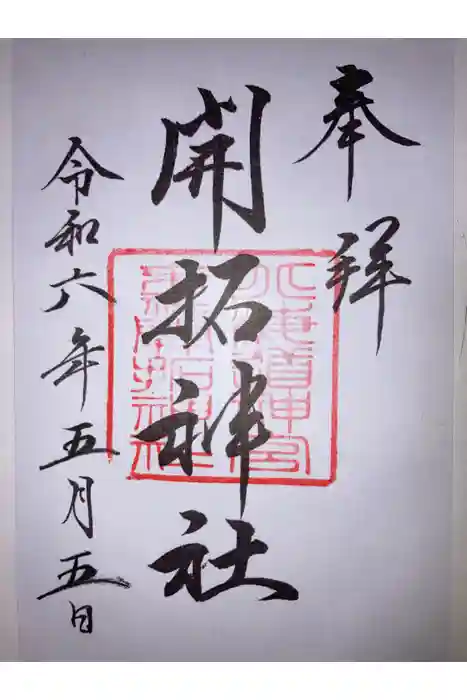 奉拝
開拓神社
北海道神宮
開拓神社
令和六年五月五日